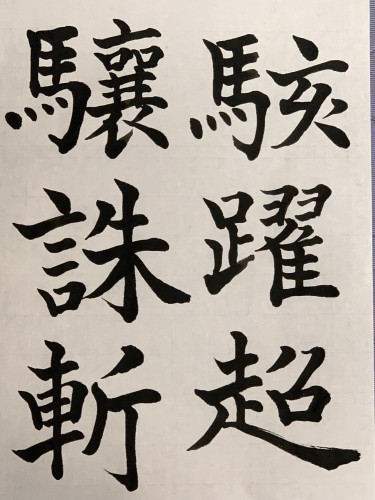 駭躍超
驤誅斬